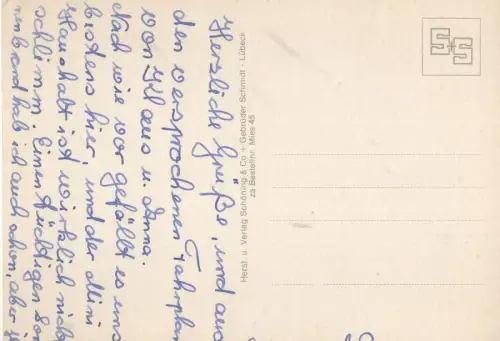 Herzliche Grüße, und auc
den versprochenen Fahrplan
von Klaus u. Anna.
Nach wie vor gefällt es uns
bestens hier, und der Mini
Haushalt ist wirklich nicht
schlimm. Einen tüchtigen Son
nenbrand hab ich auch schon, aber
Herst. u. Verlag Schöning & Co + Gebrüder Schmidt - Lübeck
za Bestellnr. Mies 45